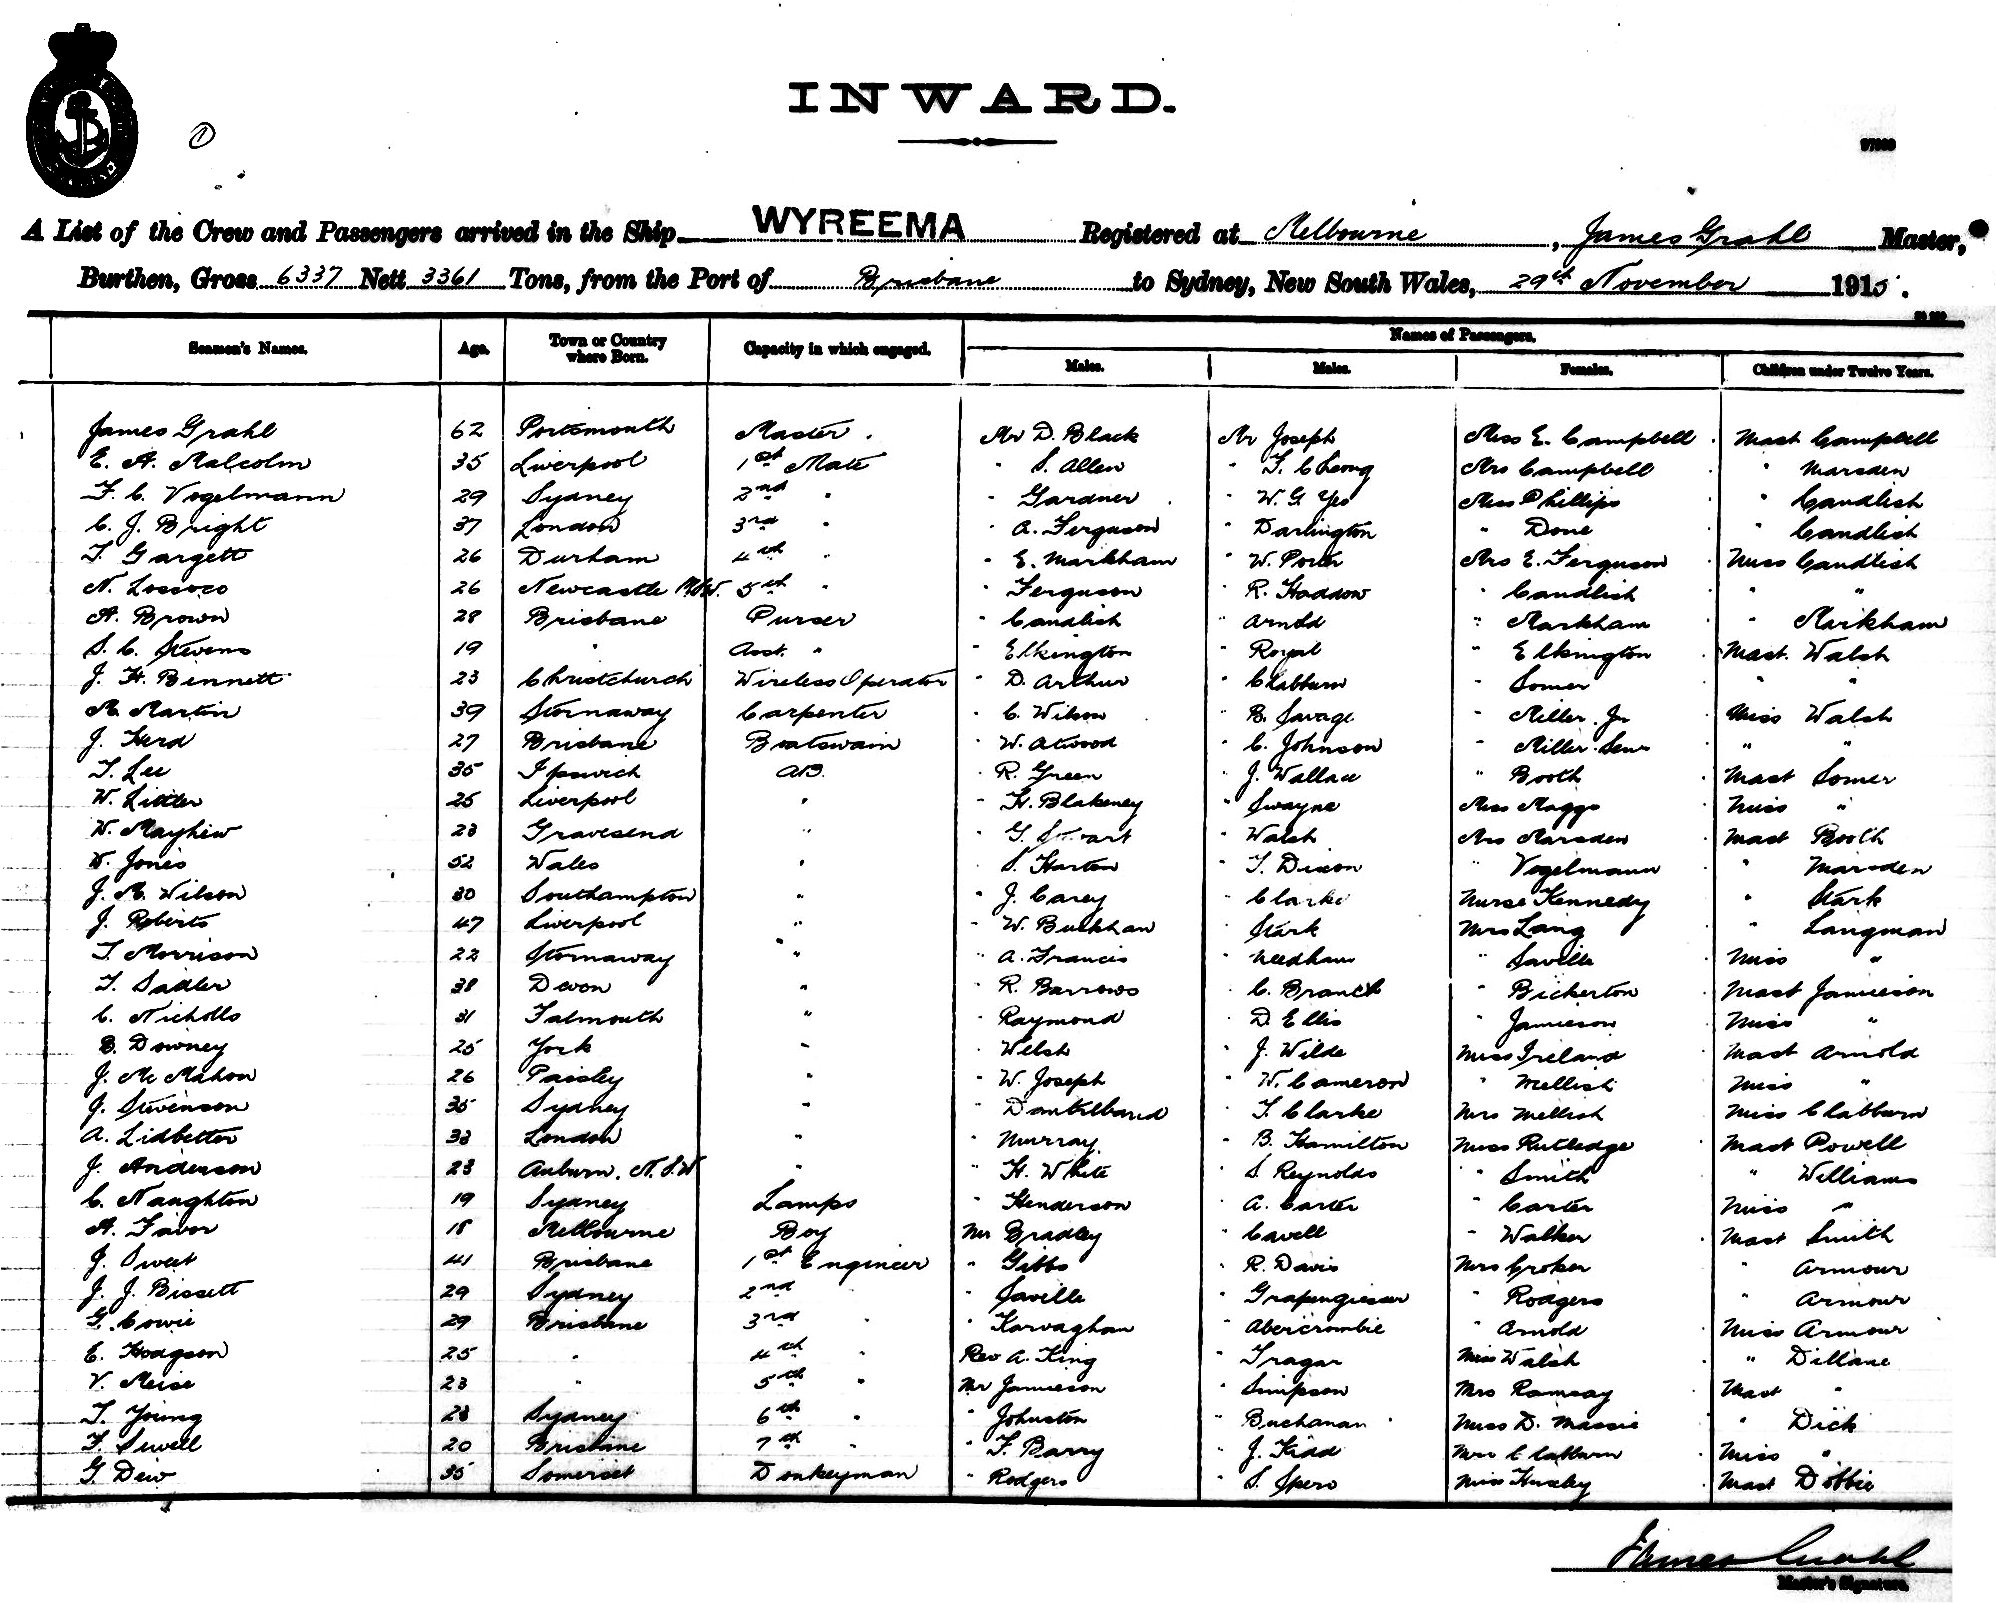 INWARD.
1
A List of the Crew and Passengers arrived in the Ship WYREEMA Registered at Melbourne, James Grahl Master,
Burthen, Gross 6337 Nett 3361 Tons, from the Port of Brisbane to Sydney, New South Wales, 29th November 1915.
Names of Passengers.
Seamen's Names. Age. Town or Country where Born. Capacity in which engaged. Males. Males. Females. Children under Twelve Years.
James Grahl 62 Portsmouth Master. Mr D. Black Mr Joseph Miss E. Campbell Mast Campbell
E. A. Malcolm 35 Liverpool 1st Mate " S. Allen " T. C Leong Mrs Campbell " Marsden
F. C. Vogelmann 29 Sydney 2nd " " Gardner " W. G. Yeo Miss Phillips " Candlish
C. J. Bright 37 London 3rd " " A. Ferguson " Darlington " Done " Candlish
T. Gargett 26 Durham 4th " " E. Markham " W. Porter Mrs E. Ferguson Miss Candlish
N. 26 Newcastle N.S.W. 5th " " Ferguson " R. Haddow " Candlish " "
A. Brown 28 Brisbane Purser " Candlish " Arnold " Markham " Markham
S. C. Stevens 19 " Asst. " " Elkington " Royal " Elkington Mast. Walsh
J. H. Bennett 23 Christchurch Wireless Operator " D. Arthur " Clabburn " Somer " "
M. Martin 39 Stornaway Carpenter " C. Wilson " B. Savage " Miller Jr Miss Walsh
J. Herd 27 Brisbane Boatswain " W. Atwood " C. Johnson " Miller Senr " "
T. Lee 35 Ipswich AB. " R. Green " J. Wallace " Booth Mast Somer
W. Littler 25 Liverpool " " H. Blakeney " Swayne Miss Maggs Miss "
W. Mayhew 23 Gravesend " " G. " Walsh Mrs Marsden Mast Booth
W. Jones 52 Wales " " S. Harton " T. Dixon " Vogelmann " Marsden
J. M. Wilson 30 Southampton " " J. Carey " Clarke Nurse Kennedy " Stark
J. Roberts 47 Liverpool " " W. Buckhan " Stark Mrs Lang " Langman
T. Morrison 22 Stornaway " " A. Francis " Needham " Saville Miss "
T. Sadler 38 Devon " " R. Barrows " C. Branch " Bickerton Mast Jamieson
C. Nicholls 31 Falmouth " " Raymond " D. Ellis " Jamieson Miss "
B. Downey 25 York " " Welsh " J. Wilde Miss Ireland Mast Arnold
J. McMahon 26 Paisley " " W. Joseph " W. Cameron " Mellish Miss "
J. Stevenson 35 Sydney " " " T. Clarke Mrs Mellish Miss Clabburn
A. Lidbetter 33 London " " Murray " B. Hamilton Miss Rutledge Mast Powell
J. Anderson 23 Auburn. N.S.W " " H. White " S. Reynolds " Smith " Williams
C. Naughton 19 Sydney Lamps " Henderson " A. Carter " Carter Miss "
A. Favor 18 Melbourne Boy Mr Bradley " Cavell " Walker Mast Smith
J. Sweet 41 Brisbane 1st Engineer " Gibbs " R. Davis Mrs Croker " Armour
J. J. Bissett 29 Sydney 2nd " " Saville " Grapengiesser " Rodgers " Armour
G. Cowie 29 Brisbane 3rd " " Karvaghan " Abercrombie " Arnold Miss Armour
E. Hodgson 25 " 4th " Rev A. King " Tragar Miss Walsh " Dillane
V. Meise 23 " 5th " Mr Jamieson " Simpson Mrs Ramsay Mast "
T. Young 23 Sydney 6th " " Johnston " Buchanan Miss D. Massie " Dick
F. Sewell 20 Brisbane 7th " " F. Barry " J. Kidd Mrs Clabburn Miss "
G. Dew 35 Somerset Donkeyman " Rodgers " S. Spero Miss Huxley Mast Dobbie
James Grahl
Master's Signature.